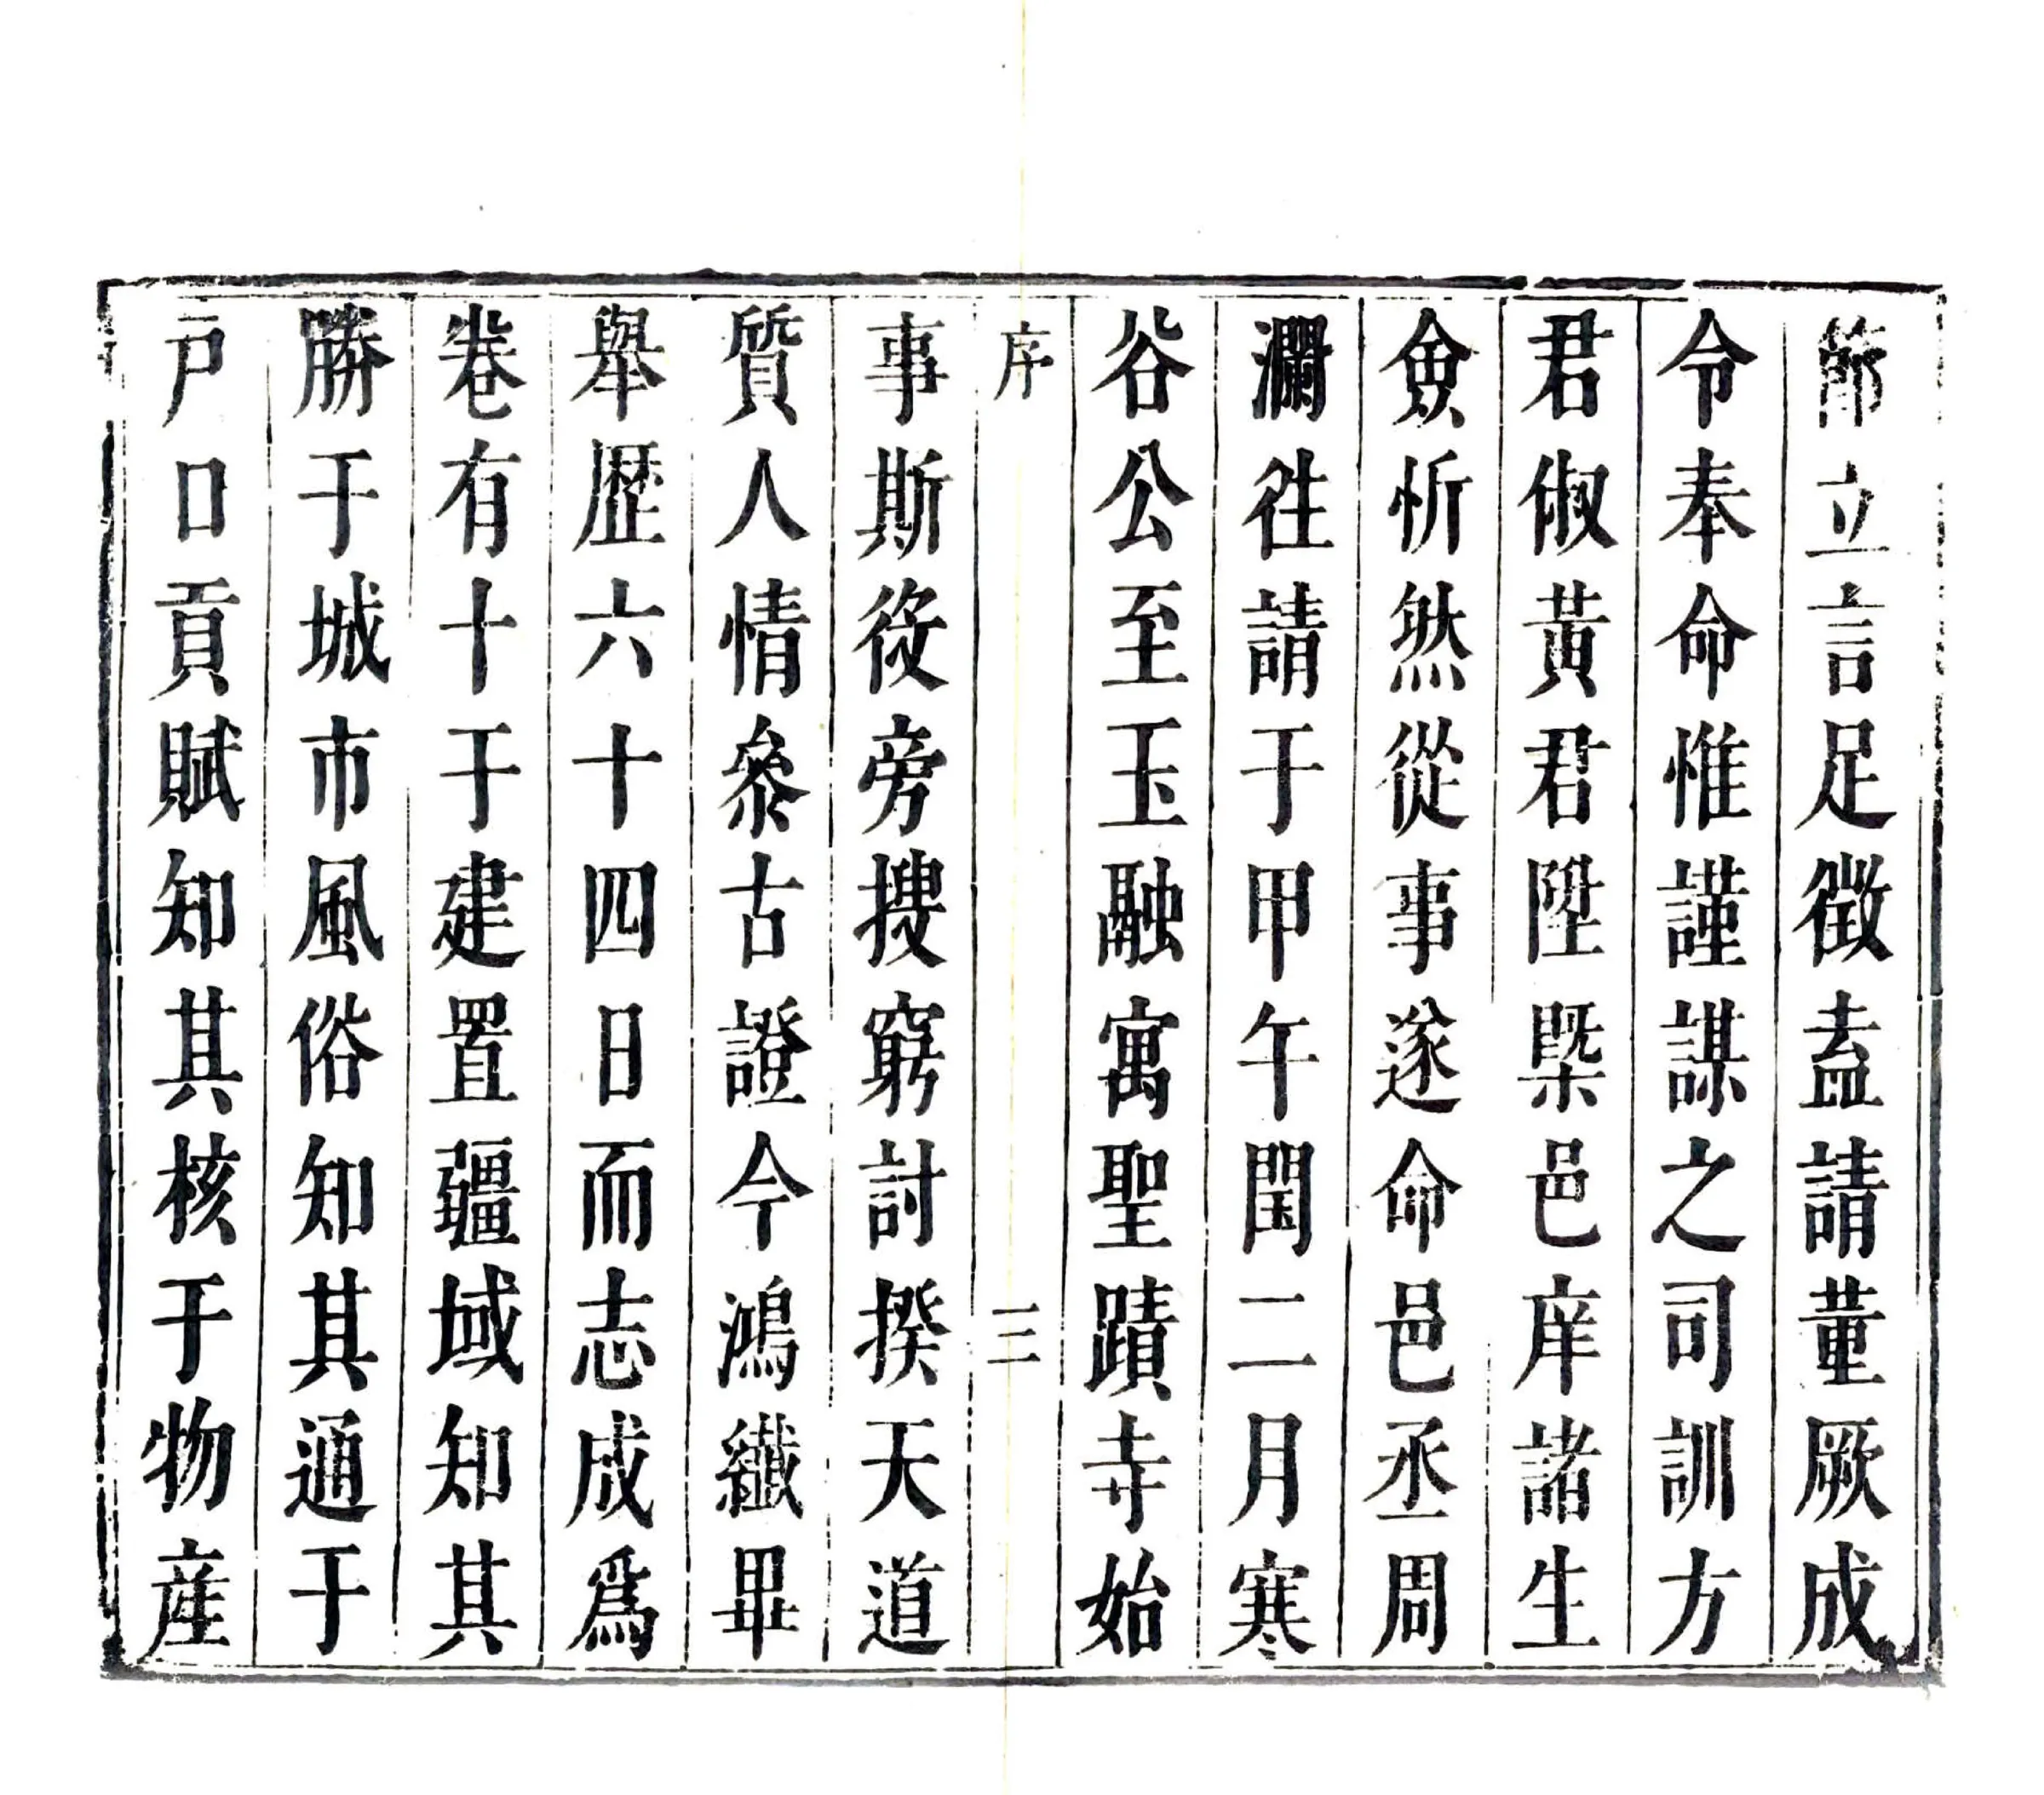 節立言足徵盍請董厥成
令奉命惟謹謀之司訓方
君俶黃君陞槩邑庠諸生
僉忻然從事遂命邑丞周
瀾往請于甲午閏二月寒
谷公至玉融寓聖蹟寺始
序 三
事斯役旁搜窮討揆天道
質人情叅古證今鴻纖畢
舉歷六十四日而志成爲
卷有十于建置疆域知其
勝于城市風俗知其通于
戸口貢賦知其核于物産